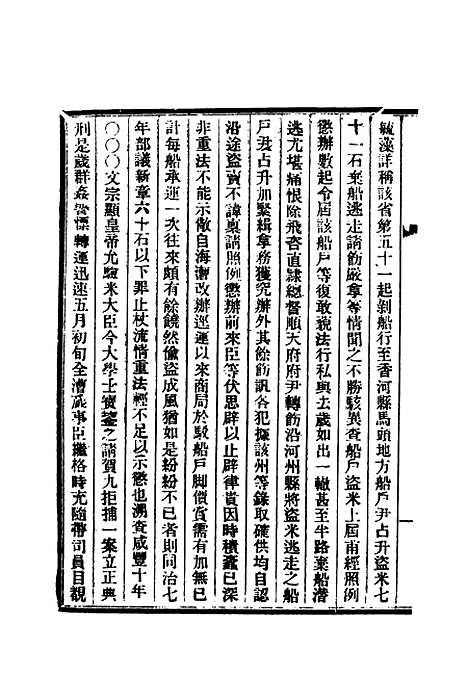 毓藻詳稱該省第五十一起剝船行至香河縣馬頭地方船戶尹占升盜米七
十一石棄船逃走請飭嚴拿等情聞之不勝駭異查船戶盜米上屆甫經照例
懲辦數起今屆該船戶等復敢藐法行私與去歲如出一轍甚至半路棄船潛
逃尤堪痛恨除飛咨直隸總督順天府府尹轉飭沿河州縣將盜米逃走之船
戶尹占升加緊緝拿務獲究辦外其餘飭訊各犯據該州等錄取確供均自認
沿途盜賣不諱稟請照例懲辦前來臣等伏思辟以止辟律貴因時積蠹已深
非重法不能示儆自海漕改辦巡運以來商局於駁船戶脚價賞需有加無已
計每船承運一次往來頗有餘饒然偷盜成風猶如是紛紛不已者則同治七
年部議新章六十石以下罪止杖流情重法輕不足以示懲也溯查咸豐十年
○○○文宗顯皇帝允驗米大臣今大學士寶鋆之請賀九拒捕一案立正典
刑是歲群姦慴慄轉運迅速五月初旬全漕蕆事臣繼格時充隨帶司員目覩